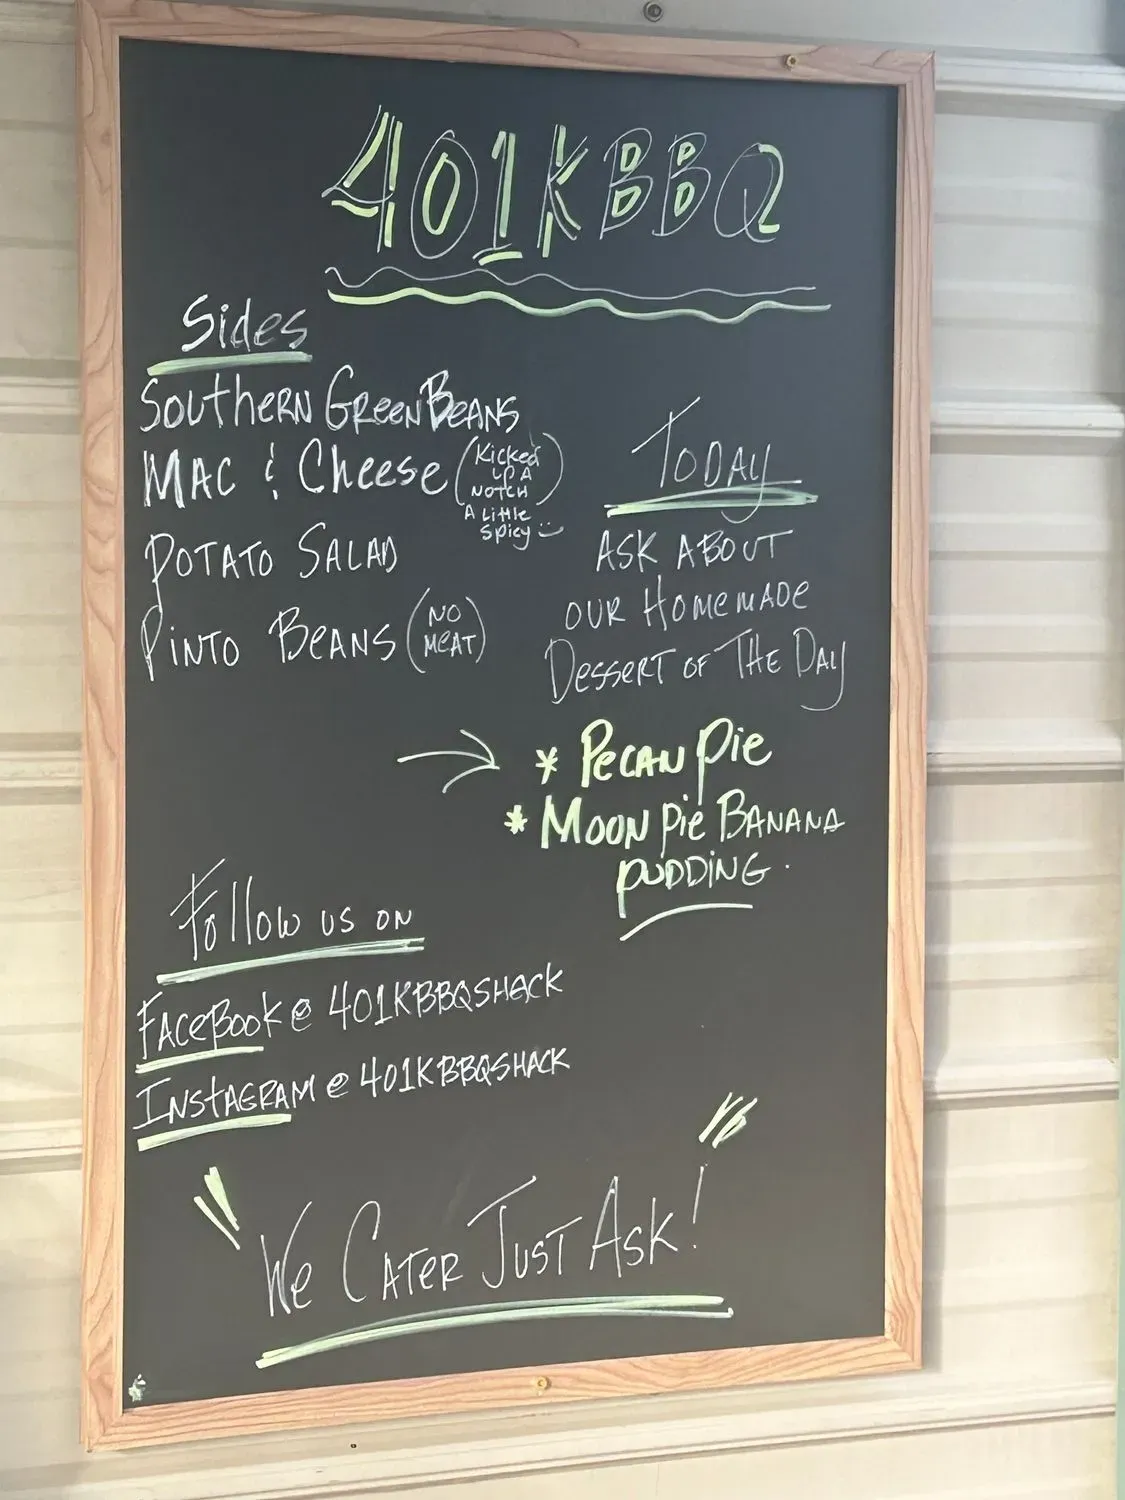 401K BBQ
Sides
Southern Green Beans
Mac & Cheese (Kicked
up a
notch
a little
spicy)
Potato Salad
Pinto Beans (No
Meat)
Today
Ask about
our Homemade
Dessert of the Day
→ * Pecan Pie
* Moon Pie Banana
Pudding.
Follow us on
Facebook @ 401KBBQSHACK
Instagram @ 401KBBQSHACK
"We Cater Just Ask!"